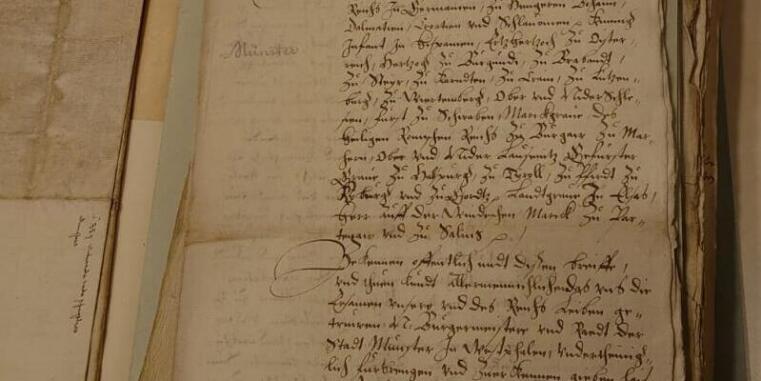 Reichs In Germanien, zu Hungern Behaim,
Dalmatien, Croatien vnd Schlauonien ꝛc. Kunnig
Infant In Hispanien, Ertzhertzog zu Oster-
reich, Hertzog zu Burgundi, zu Brabandt,
zu Steyr, zu Kerndten, zu Crain, zu Lutzen-
burg, zu Wiertemberg, Ober vnd Nider Schle-
sien, Furst zu Schwaben, Marckgraue des
Heiligen Romischen Reichs zu Burgaw zu Mar-
hern, Ober vnd Nider Lausnitz Gefurster
Graue zu Habspurg, zu Tyroll, zu Pfierdt zu
Kyburg vnd zu Gortz, Landtgraue In Elsas,
Herr auff der Windischen Marck zu Por-
tenaw vnd zu Salins ꝛc.
Münster
Bekennen offentlich midt dissen brieffe,
vnd thuen kundt allermennichlichen das vns die
Ersamen vnsere vnd des Reichs Lieben ge-
trewen N. Burgermeistere vnd Raedt der
Stadt Münster In Westphalen, vnderthenig-
lich furbrengen vnd zuerkennen geben